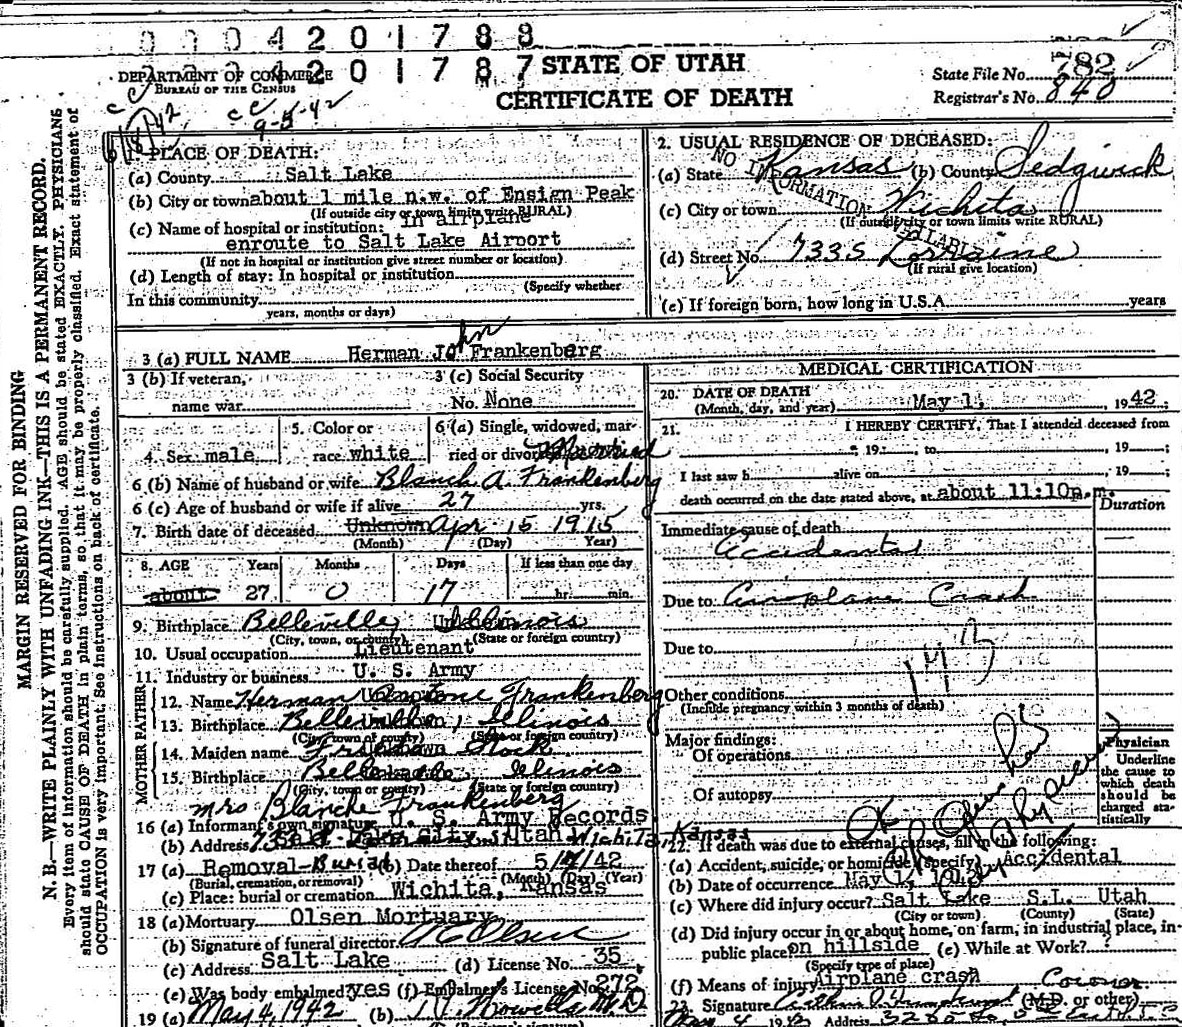 0004201788
0004201787
DEPARTMENT OF COMMERCE
BUREAU OF THE CENSUS
STATE OF UTAH
CERTIFICATE OF DEATH
State File No. 782
Registrar's No. 840
9-5-42
MARGIN RESERVED FOR BINDING
N. B.—WRITE PLAINLY WITH UNFADING INK—THIS IS A PERMANENT RECORD.
Every item of information should be carefully supplied. AGE should be stated EXACTLY. PHYSICIANS
should state CAUSE OF DEATH in plain terms, so that it may be properly classified. Exact statement of
OCCUPATION is very important. See instructions on back of certificate.
1. PLACE OF DEATH:
(a) County Salt Lake
(b) City or town about 1 mile n.w. of Ensign Peak
(If outside city or town limits write RURAL)
(c) Name of hospital or institution: in airplane
enroute to Salt Lake Airport
(If not in hospital or institution give street number or location)
(d) Length of stay: In hospital or institution
(Specify whether
In this community
years, months or days)
2. USUAL RESIDENCE OF DECEASED:
NO INFORMATION AVAILABLE
(a) State Kansas (b) County Sedgwick
(c) City or town Wichita
(If outside city or town limits write RURAL)
(d) Street No. 733 S Lorraine
(If rural give location)
(e) If foreign born, how long in U.S.A. years
3 (a) FULL NAME Herman John Frankenberg
3 (b) If veteran,
name war
3 (c) Social Security
No. None
4. Sex male
5. Color or
race white
6 (a) Single, widowed, mar-
ried or divorced Married
6 (b) Name of husband or wife Blanch A. Frankenberg
6 (c) Age of husband or wife if alive 27 yrs.
7. Birth date of deceased Unknown Apr 15 1915
(Month) (Day) Year)
8. AGE Years Months Days If less than one day
about 27 0 17 hr. min.
9. Birthplace Belleville Illinois
(City, town, or county) (State or foreign country)
10. Usual occupation Lieutenant
11. Industry or business U. S. Army
FATHER
12. Name Herman Frankenberg
13. Birthplace Belleville, Illinois
(City, town or county) (State or foreign country)
MOTHER
14. Maiden name Stock
15. Birthplace Belleville Illinois
(City, town or county) (State or foreign country)
Mrs Blanche Frankenberg
16 (a) Informant's own signature U. S. Army Records
(b) Address Lake City, Utah Wichita, Kansas
17 (a) Removal-Burial (b) Date thereof 5/ /42
(Burial, cremation, or removal) (Month) (Day) (Year)
(c) Place: burial or cremation Wichita, Kansas
18 (a) Mortuary Olsen Mortuary
(b) Signature of funeral director Olsen
(c) Address Salt Lake (d) License No. 35
(e) Was body embalmed? yes (f) Embalmer's License No. 278
19 (a) May 4, 1942 (b) M.D.
MEDICAL CERTIFICATION
20. DATE OF DEATH
(Month, day, and year) May 1, 1942;
21. I HEREBY CERTIFY, That I attended deceased from
, 19 ; to , 19 ;
I last saw h alive on , 19 ;
death occurred on the date stated above, at about 11:10p.m.
Duration
Immediate cause of death
Accidental
Due to Airplane Crash
Due to
143
Other conditions
(Include pregnancy within 3 months of death)
Major findings:
Of operations
Of autopsy
Physician
Underline
the cause to
which death
should be
charged sta-
tistically
22. If death was due to external causes, fill in the following:
(a) Accident, suicide, or homicide (specify) Accidental
(b) Date of occurrence May 1, 1942
(c) Where did injury occur? Salt Lake S.L. Utah
(City or town) (County) (State)
(d) Did injury occur in or about home, on farm, in industrial place, in
public place? on hillside (e) While at Work? ?
(Specify type of place)
(f) Means of injury Airplane crash
Coroner
23. Signature (M.D. or other)
May 4 1942 Address